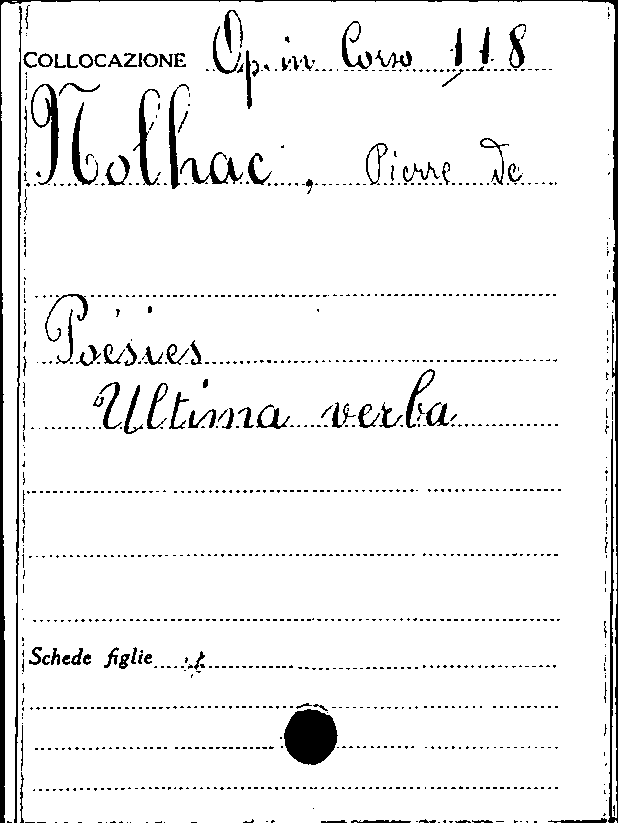 COLLOCAZIONE Op. in Corso 118
Nolhac, Pierre de
Poésies
Ultima verba
Schede figlie